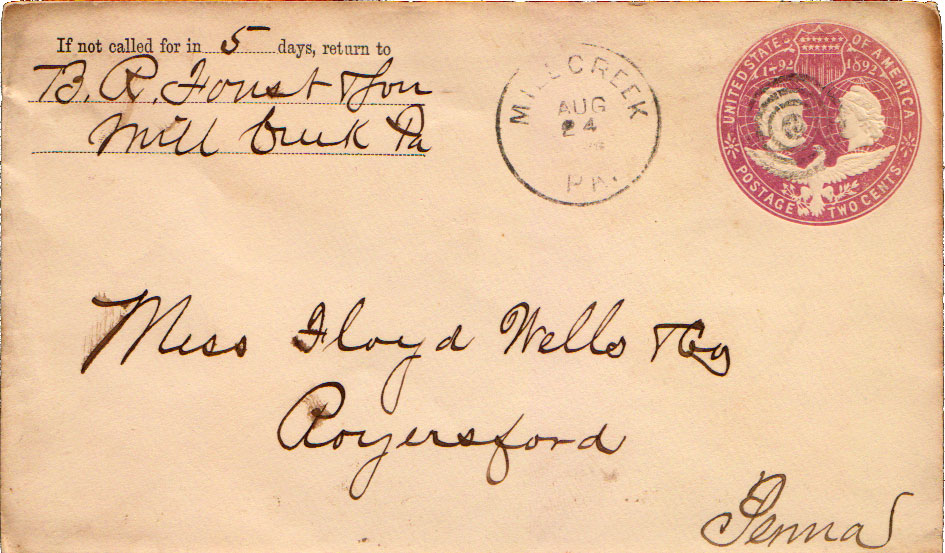 If not called for in 5 days, return to
B. R. Foust & Son
Mill Creek Pa
MILL CREEK
AUG
24
PA.
UNITED STATES OF AMERICA
1792 1892
POSTAGE TWO CENTS
Mess Floyd Wells & Co
Royersford
Penna